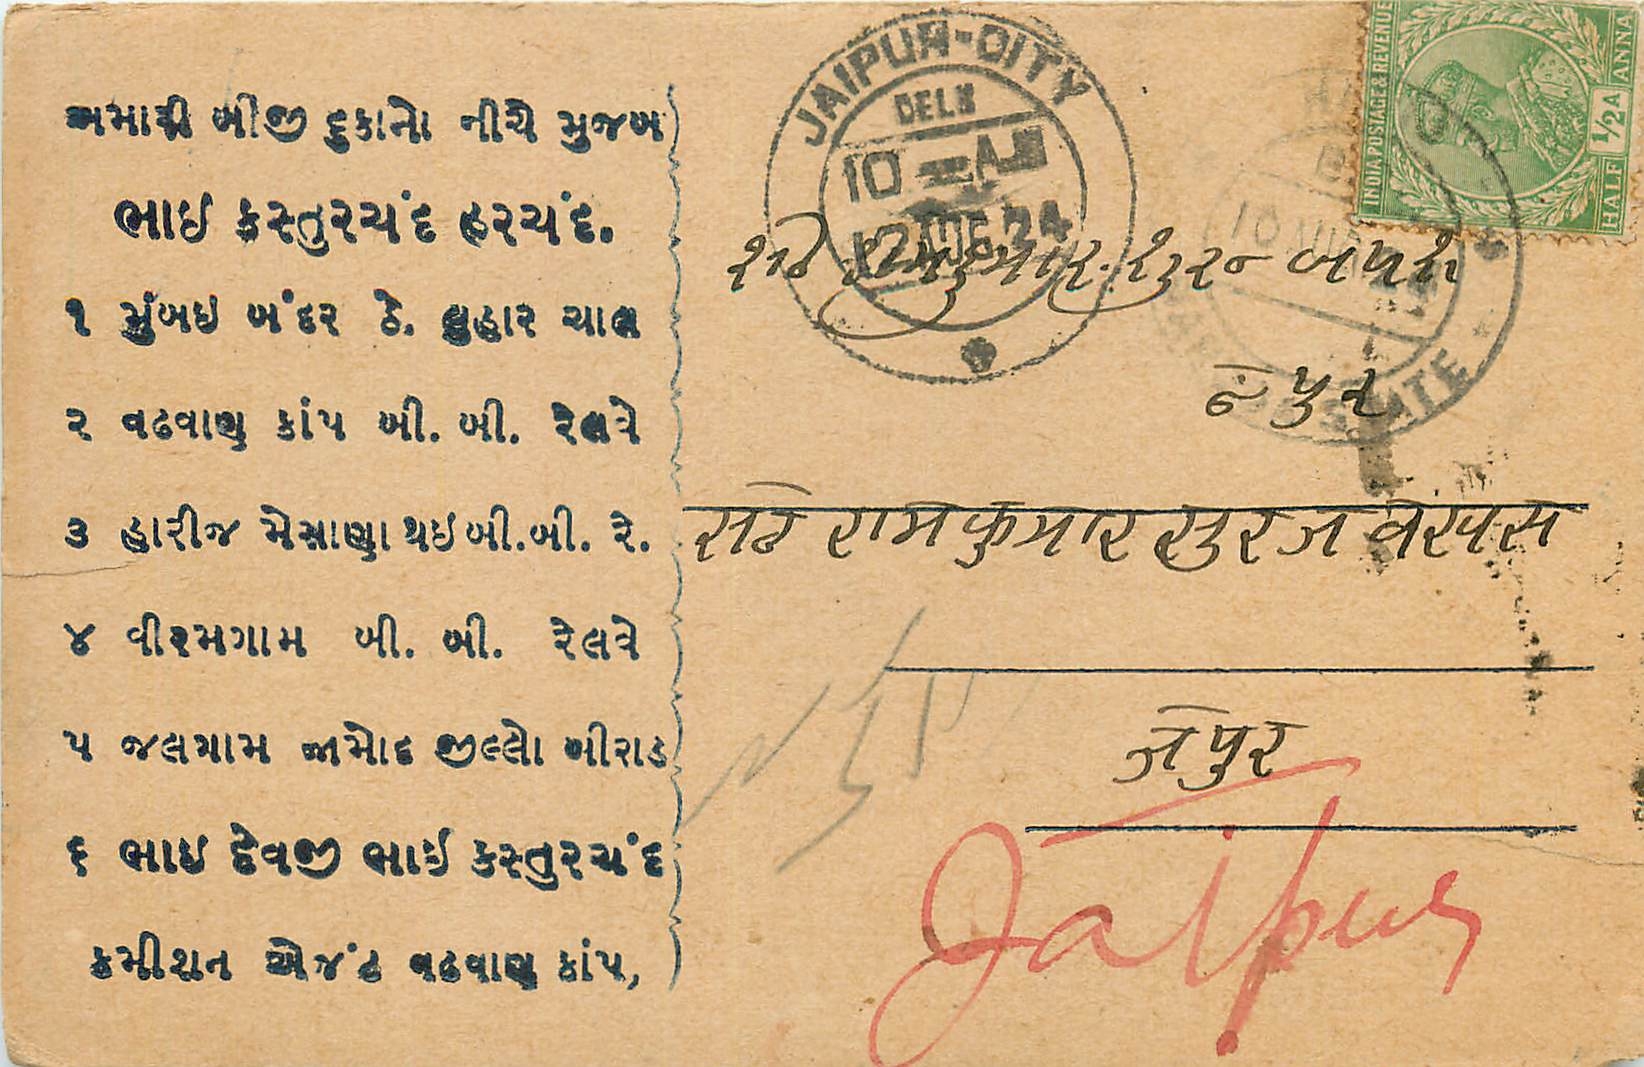 અમારી બીજી દુકાનો નીચે મુજબ
ભાઈ કસ્તુરચંદ હરચંદ.
૧ મુંબઇ બંદર ઠે. લુહાર ચાલ
૨ વઢવાણ કાંપ બી. બી. રેલવે
૩ હારીજ મેસાણા થઇ બી. બી. રે.
૪ વીરમગામ બી. બી. રેલવે
૫ જલગામ જામોદ જીલ્લો બીરાડ
૬ ભાઇ દેવજી ભાઈ કસ્તુરચંદ
કમીશન એજંટ વઢવાણ કાંપ,
JAIPUR-CITY
DELY
10 - AM
12 AUG 24
INDIA POSTAGE & REVENUE
HALF 1/2A ANNA
10 AUG
STATE
सेठ रामकुमार सुरज बखस
जेपुर
Jaipur